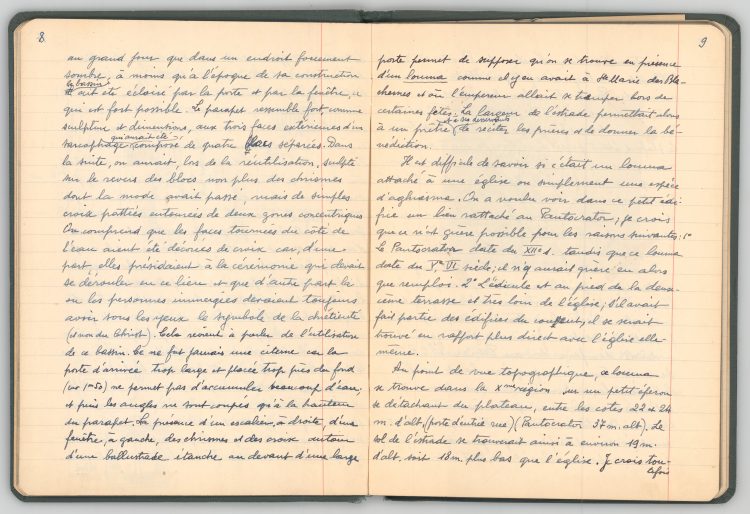 8
au grand jour que dans un endroit forcément
sombre, à moins qu'à l'époque de sa construction
le bassin
ait été éclairé par la porte et par la fenêtre, ce
qui est fort possible. Le parapet ressemble fort, comme
sculpture et dimensions, aux trois faces extérieures d'un
sarcophage composé de quatre faces séparées. Dans
la suite, on aurait, lors de la réutilisation, sculpté
sur le revers des blocs non plus des chrismes
dont la mode avait passé, mais de simples
croix pattées entourées de deux zones concentriques
On comprend que les faces tournées du côté de
l'eau aient été décorées de croix car, d'une
part, elles présidaient à la cérémonie qui devait
se dérouler en ce lieu et que d'autre part la
ou les personnes immergées devaient toujours
avoir sous les yeux le symbole de la chrétienté
(et non du Christ). Cela revient à parler de l'utilisation
de ce bassin. Ce ne fut jamais une citerne car la
porte d'arrivée trop large et placée trop près du fond
(1m50) ne permet pas d'accumuler beaucoup d'eau,
et puis les angles ne sont coupés qu'à la hauteur
du parapet. La présence d'un escalier, à droite, d'une
fenêtre, à gauche, des chrismes et des croix autour
d'une ballustrade étanche au devant d'une large
9
porte permet de supposer qu'on se trouve en présence
d'un louma comme il y en avait à Ste Marie des Bla-
chernes et où l'empereur allait se tremper lors de
certaines fêtes. La largeur de l'estrade permettait alors
et à ses desservants
à un prêtre de réciter les prières et de donner la bé-
nédiction.
Il est difficile de savoir si c'était un louma
attaché à une église ou simplement une espèce
d'aghiasma. On a voulu voir dans ce petit édi-
fice un lieu rattaché au Pantocrator; je crois
que ce n'est guère possible pour les raisons suivantes: 1°
Le Pantocrator date du XIIe s. tandis que ce louma
date du Ve, VI siècle, il n'y aurait guère eu alors
que remplois. 2° L'édicule est au pied de la deu-
xième terrasse et très loin de l'église; s'il avait
fait partie des édifices du couvent, il se serait
trouvé en rapport plus direct avec l'église elle
même.
Au point de vue topographique, ce louma
se trouve dans la Xme région sur un petit éperon
se détachant du plateau, entre les cotes 22 et 24
m. d'alt. (porte d'entrée rue) (Pantocrator 37 m. alt). Le
sol de l'estrade se trouverait ainsi à environ 19 m.
d'alt. soit 18 m. plus bas que l'église. Je crois tou-
tefois